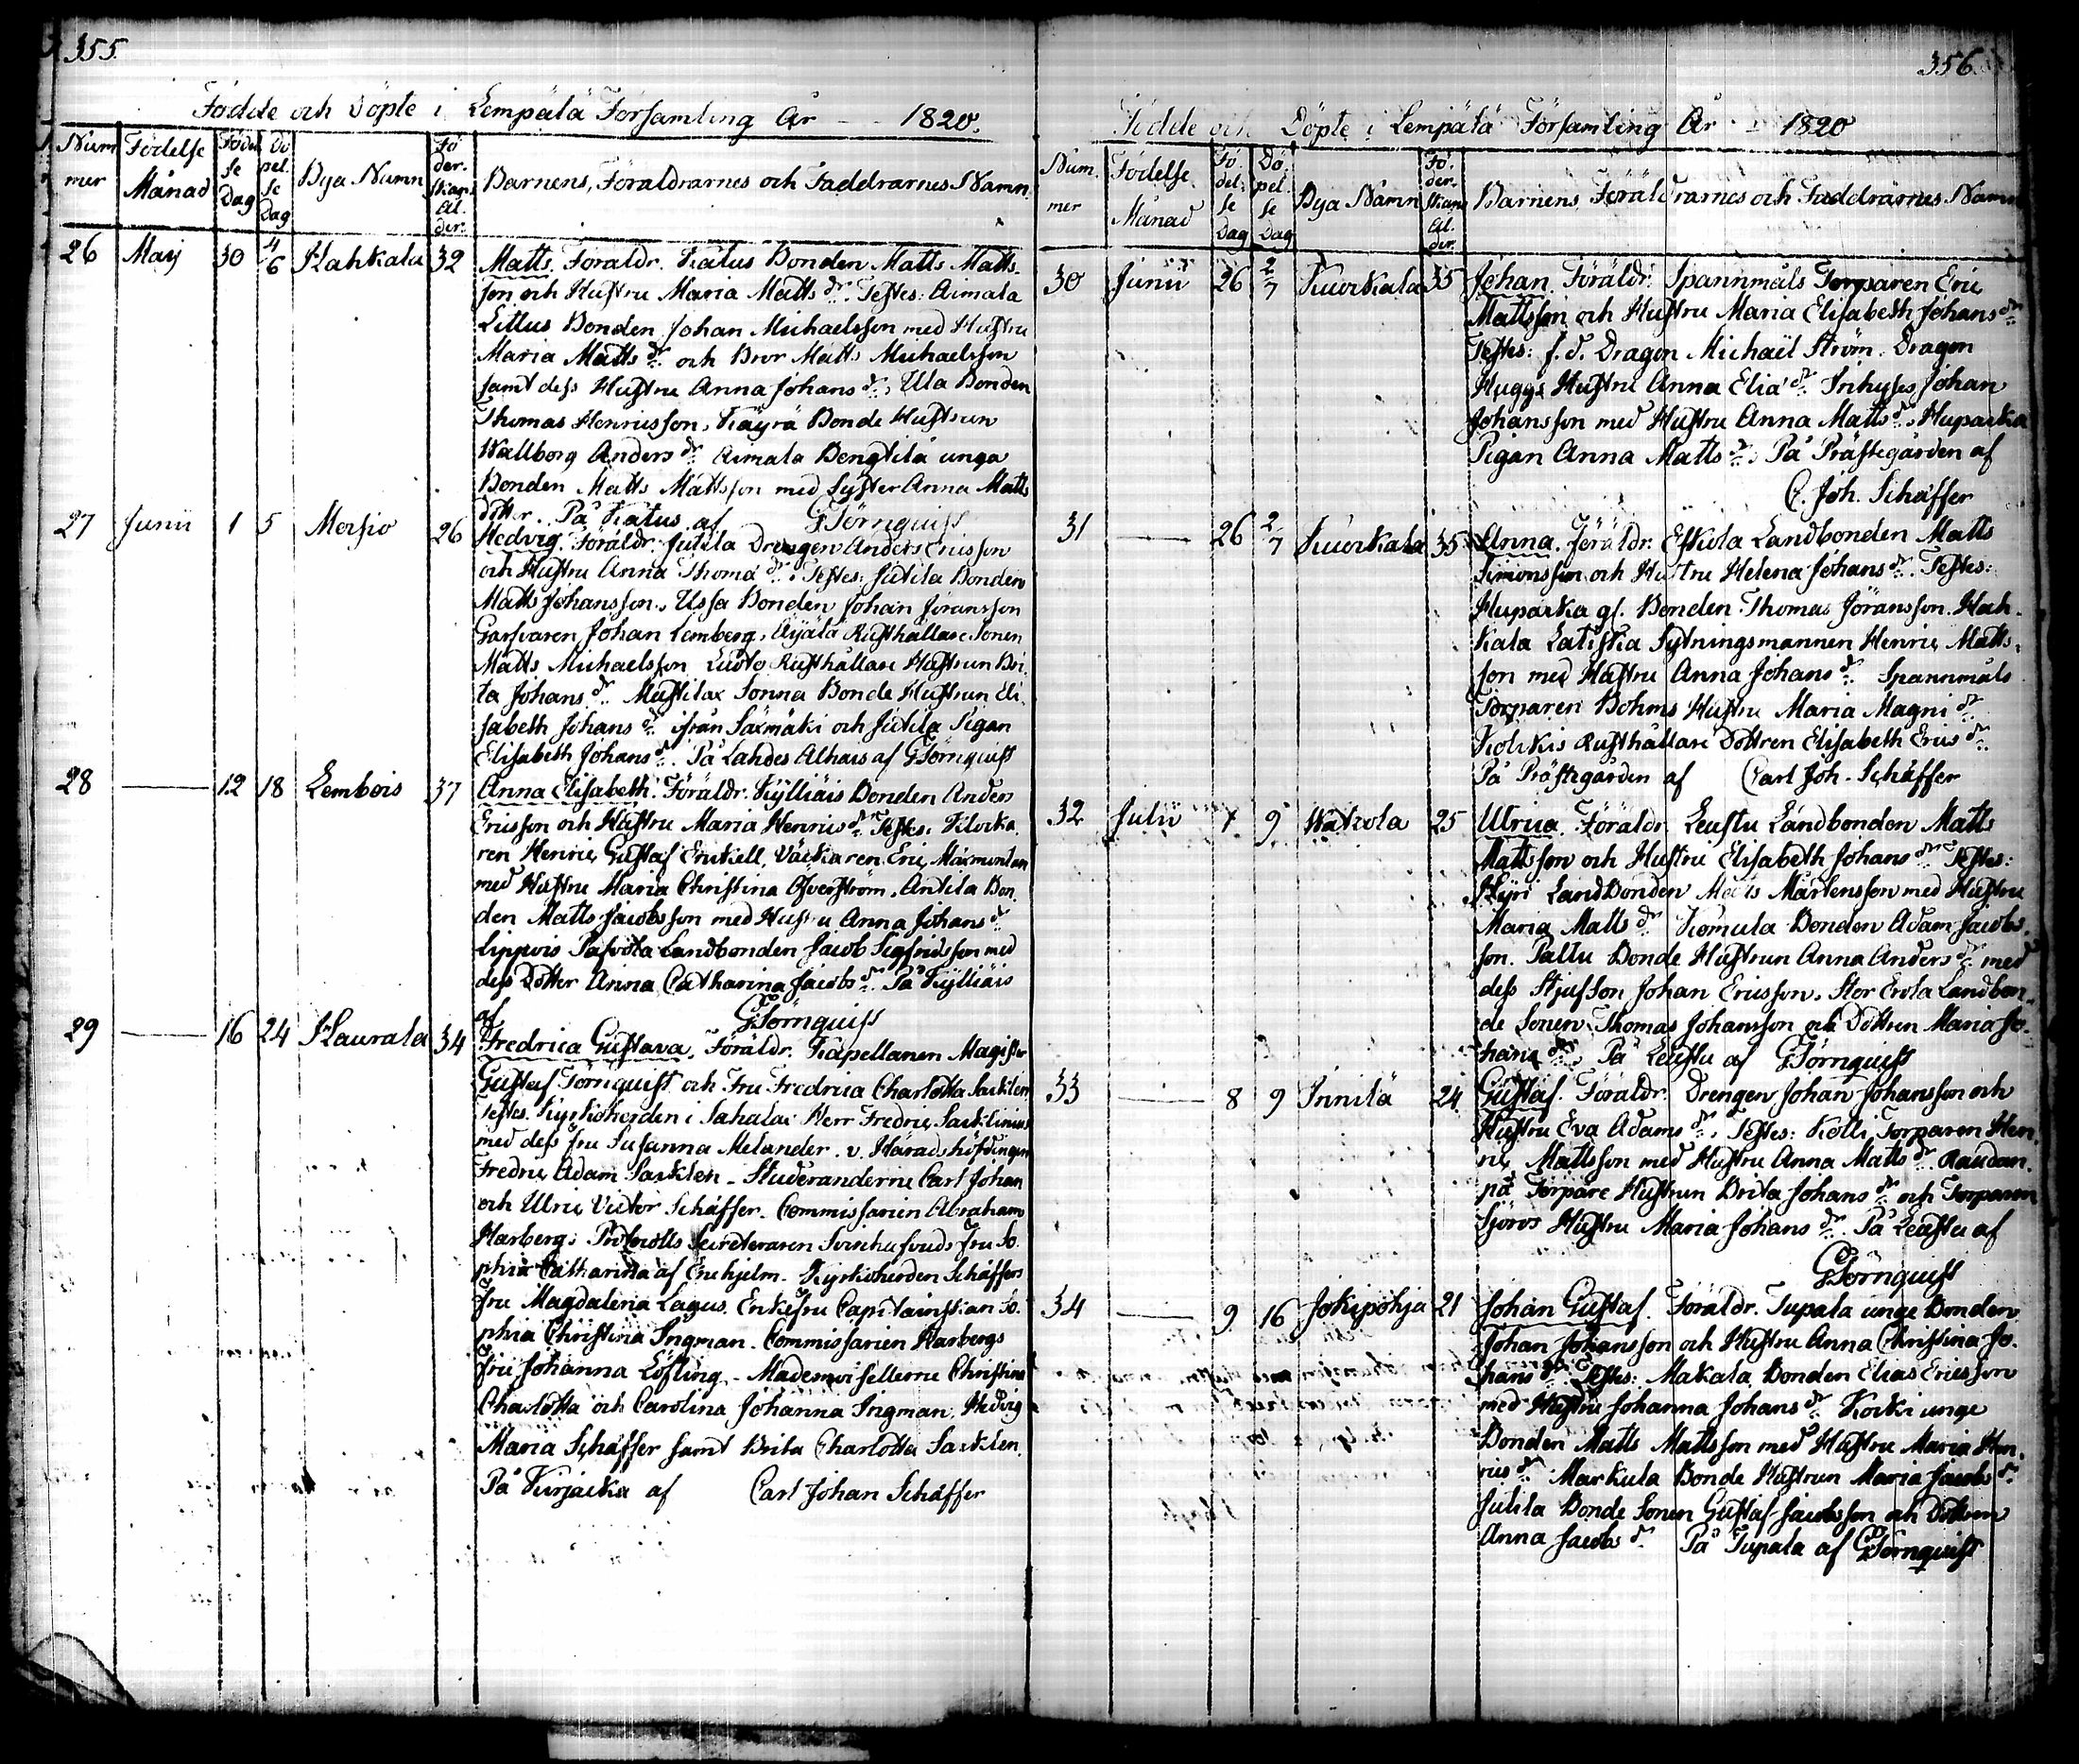 355.
Födde och Döpte i Lempälä Församling År 1820.
Num mer
Födelse Månad
Födel se Dag
Dö pel. se Dag
Bya Namn
Fö der. skans Ål. der.
Barnens, Föräldrarnes och Faddrarnes Namn
26 Maij 30 4/6 Hahkala 32 Matts. Föräldr. Katus Bonden Matts Matts
son och Hustru Maria Matts dr. Testes: Aimala
Littus Bonden Johan Michaelsson med Hustru
Maria Matts dr. och Bror Matts Michaelsson
samt dess Hustru Anna Johans dr. Ula Bonden
Thomas Henricsson, Käyrä Bonde Hustrun
Wallborg Anders dr. Aimala Bengtilä unga
Bonden Matts Mattsson med Syster Anna Matts
dotter. På Katus af GTörnquist
27 Junii 1 5 Moisio 26 Hedvig. Föräldr. Jutila Drengen Anders Ericsson
och Hustru Anna Thoma dr. Testes: Jutila Bonden
Matts Johansson, Ussa Bonden Johan Jöransson
Garfvaren Johan Lemberg, Äyälä Rusthållare Sonen
Matts Michaelsson Rusthållare Hustrun Bri
ta Johans dr. Sonna Bonde Hustrun Eli
sabeth Johans dr. ifrån Säxmäki och Jutila Pigan
Elisabeth Johans dr. På Lahdes af GTörnquist
28 12 18 Lembois 37 Anna Elisabeth. Föräldr. Kylliäis Bonden Anders
Ericsson och Hustru Maria Henrics dr. Testes: Klocka
ren Henric Gustaf Enckell, Väckaren Eric Maxmontan
med Hustru Maria Christina Öfverström, Antila Bon
den Matts Jacobsson med Hustru Anna Johans dr.
Lippois Landbonden Jacob Sigfridsson med
dess Dotter Anna Catharina Jacobs dr. På Kylliäis
af GTörnquist
29 16 24 Haurala 34 Fredrica Gustava. Föräldr. Kapellanen Magister
Gustaf Törnquist och Fru Fredrica Charlotta Sacklen
Testes. Kyrkoherden i Sahalax Herr Fredric Sacklinius
med dess fru Susanna Melander. v. Häradshöfdingen
Fredric Adam Sacklen - Studeranderne Carl Johan
och Ulric Victor Schäffer. Commissarien Abraham
Harberg; Protocolls Secreteraren fru So
phia Catharina af Enehjelm. Kyrkoherden Schäffers
fru Magdalena Lagus. Enkefru Capitainskan So
phia Christina Ingman. Commissarien Harbergs
fru Johanna Löfling - Mademoisellerne Christina
Charlotta och Carolina Johanna Ingman, Hedvig
Maria Schäffer samt Brita Charlotta Sacklen
På Kurjacka af Carl Johan Schäffer
356.
Födde och Döpte i Lempälä Församling År 1820
Num. mer
Födelse Månad
Fö del. se Dag
Dö pel. se Dag
Bya Namn
Fö. der. skans Ål. der.
Barnens, Föräldrarnes och Faddrarnes Namn
30 Junii 26 2/7 Kuockala 35 Johan. Föräldr. Spannmåls Torparen Eric
Mattsson och Hustru Maria Elisabeth Johans dr.
Testes: f. d. Dragon Michaël Ström. Dragon
Huggs Hustru Anna Elia dr. Inhyses Johan
Johansson med Hustru Anna Matts dr. Huparka
Pigan Anna Matts dr. På Prästegården af
C. Joh. Schäffer
31 26 2/7 Kuockala 35 Anna. Föräldr. Eskola Landbonden Matts
Simonsson och Hustru Helena Johans dr. Testes:
Huparka gl. Bonden Thomas Jöransson. Hah
kala Sytningsmannen Henric Matts
son med Hustru Anna Johans dr. Spannmåls
Torparen Bohms Hustru Maria Magni dr.
Rusthållare Dottren Elisabeth Erics dr.
På Prästegården af Carl Joh. Schäffer
32 Julii 7 9 Wakola 25 Ulrica. Föräldr. Leustu Landbonden Matts
Mattsson och Hustru Elisabeth Johans dr. Testes:
Landbonden Matts Mårtensson med Hustru
Maria Matts dr. Romula Bonden Adam Jacobs
son. Paltu Bonde Hustrun Anna Anders dr. med
dess Stjufson Johan Ericsson. Stor Erola Landbon
de Sonen Thomas Johansson och Dottren Maria Jo
hans dr. På Leustu af GTörnquist
33 8 9 Innilä 24 Gustaf. Föräldr. Drengen Johan Johansson och
Hustru Eva Adams dr. Testes: Kolli Torparen Hen
ric Mattsson med Hustru Anna Matts dr. Raudan
pä Torpare Hustrun Brita Johans dr. och Torparen
Sjöros Hustru Maria Johans dr. På Leustu af
GTörnquist
34 9 16 Jokipohja 21 Johan Gustaf. Föräldr. Tupala unge Bonden
Johan Johansson och Hustru Anna Christina Jo
hans dr. Testes: Makala Bonden Elias Ericsson
med Hustru Johanna Johans dr. Kocki unge
Bonden Matts Mattsson med Hustru Maria Hen
rics dr. Markula Bonde Hustrun Maria Jacobs dr.
Jutila Bonde Sonen Gustaf Jacobsson och Dottren
Anna Jacobs dr. På Tupala af GTörnquist